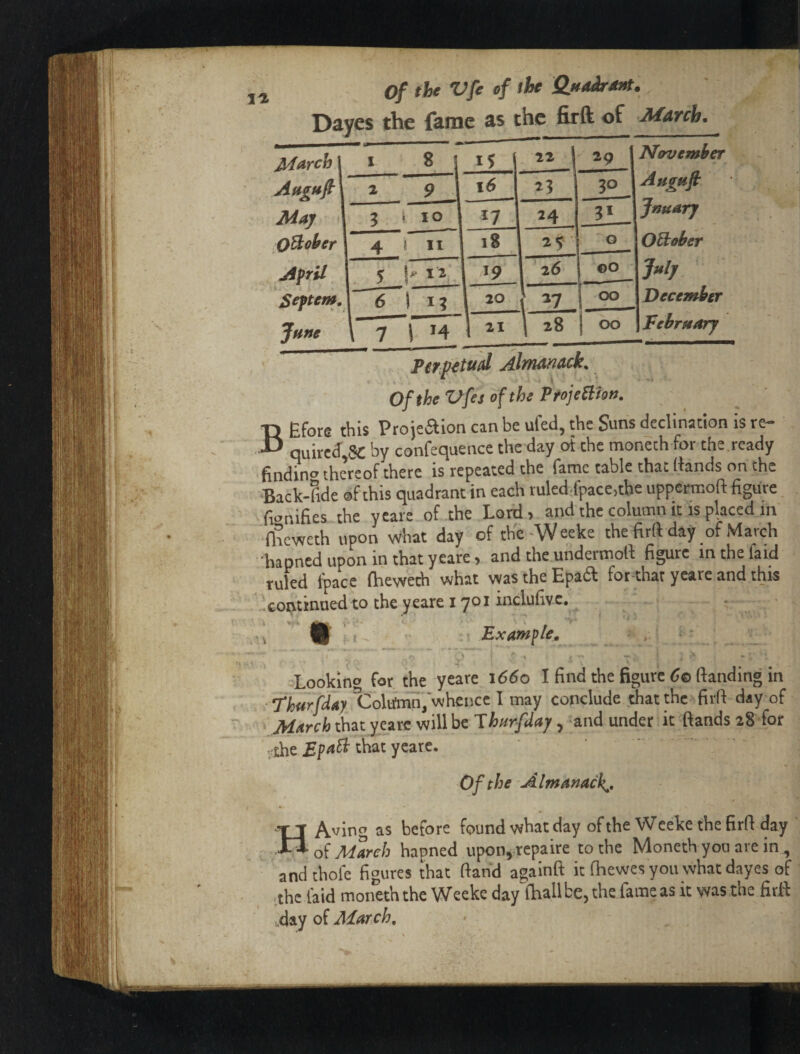 12 Of the Vſe of the Quadrant.
Dayes the ſame as the firſt of March.
March 1 8 15 22 29 November
Auguſt 2 9 16 23 30 Auguſt
May 3 10 17 24 31 Jnuary
October 4 11 18 25 0 October
April 5 12 19 26 00 July
Septem. 6 13 20 27 00 December
June 7 14 21 28 00 February
Perpetual Almanack.
Of the Vſes of the Projection.
BEfore this Projection can be uſed, the Suns declination is re-
quired,& by conſequence the day of the moneth for the ready
finding thereof there is repeated the ſame table that ſtands on the
Back-ſide of this quadrant in each ruled ſpace,the uppermoſt figure
ſignifies the yeare of the Lord, and the column it is placed in
ſheweth upon what day of the Weeke the firſt day of March
hapned upon in that yeare, and the undermoſt figure in the ſaid
ruled ſpace ſheweth what was the Epact for that yeare and this
continued to the yeare 1701 incluſive.
Example.
Looking for the yeare 1660 I find the figure 60 ſtanding in
Thurſday Column, whence I may conclude that the firſt day of
March that yeare will be Thurſday, and under it ſtands 28 for
the Epact that yeare.
Of the Almanack.
HAving as before found what day of the Weeke the firſt day
of March hapned upon, repaire to the Moneth you are in,
and thoſe figures that ſtand againſt it ſhewes you what dayes of
the ſaid moneth the Weeke day ſhall be, the ſame as it was the firſt
day of March.